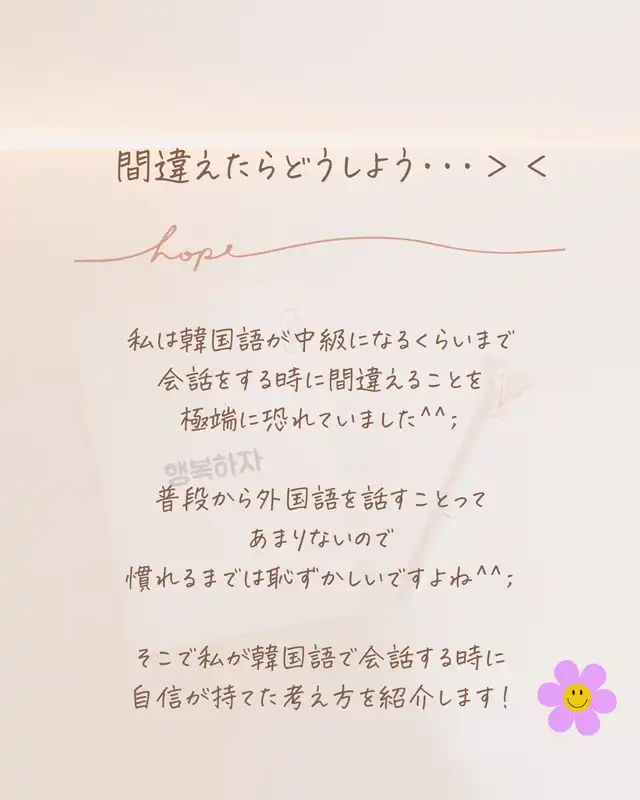 間違えたらどうしよう・・・＞＜
hope
私は韓国語が中級になるくらいまで
会話をする時に間違えることを
極端に恐れていました^^;
행복하자
普段から外国語を話すことって
あまりないので
慣れるまでは恥ずかしいですよね^^;
そこで私が韓国語で会話する時に
自信が持てた考え方を紹介します！